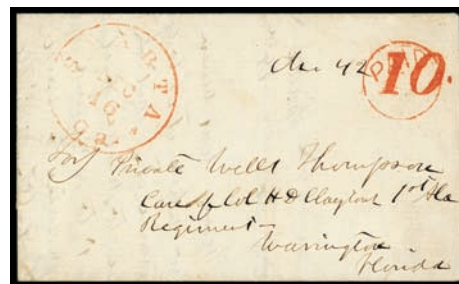 SPARTA
16
Ga.
PAID
10.
For Private Wells Thompson
Care of Col H D Clayton 1st Ala
Regiment
Warrington
Florida